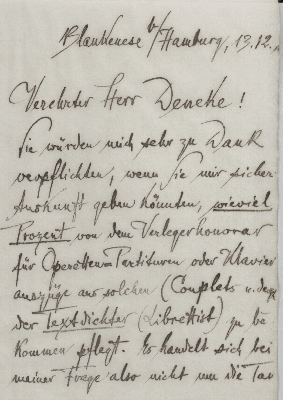 Blankenese b/Hamburg, 13.12.
Verehrter Herr Deneke!
Sie würden mich sehr zu Dank
verpflichten, wenn Sie mir sicher
Auskunft geben könnten, wieviel
Prozent von dem Verlegerhonorar
für Operetten-Partituren oder Klavier
auszüge aus solchen (Couplets u. dergl
der Textdichter (Librettist) zu be
kommen pflegt. Es handelt sich bei
meiner Frage also nicht um die Tan